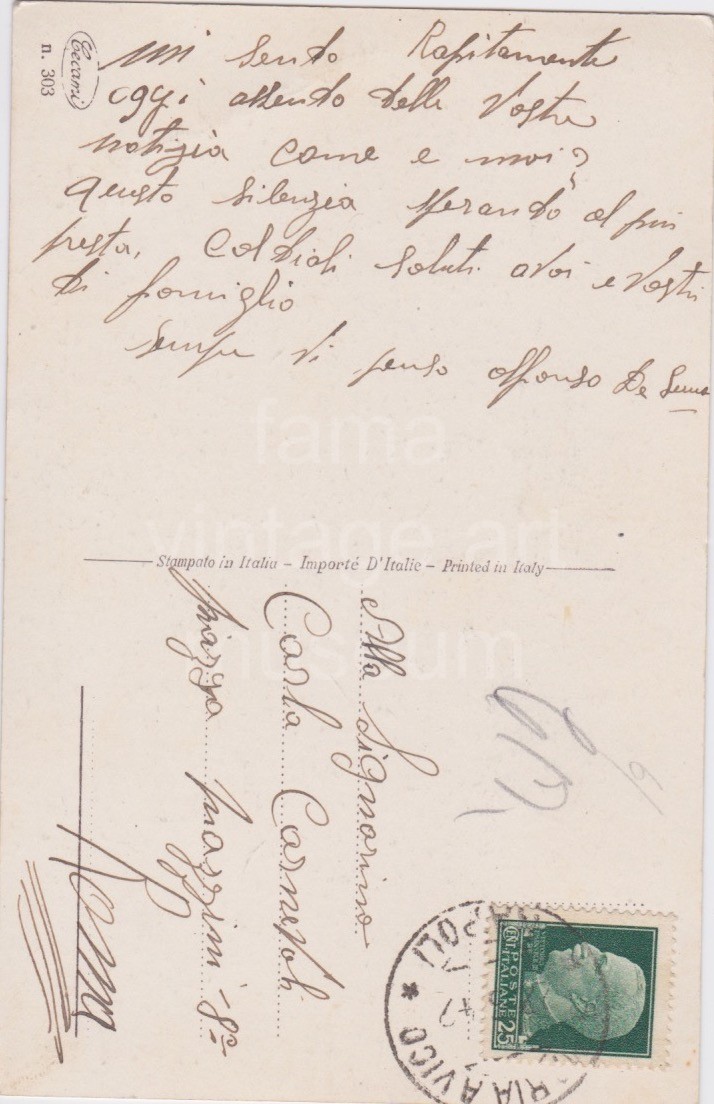 mi sendo Rapitamente
oggi attendo delle vostre
notizia come e moi?
questo silenzia sperando al piu
presta, Coldiali saluti a voi e vostri
di famiglia
sempre vi penso Alfonso De
Ceccami
n. 303
fama
vintage art
museum
Stampato in Italia – Importé D'Italie – Printed in Italy
Alla Signorina
Carla
piazza Mazzini 8
Roma
NAPOLI
POSTE
ITALIANE
25